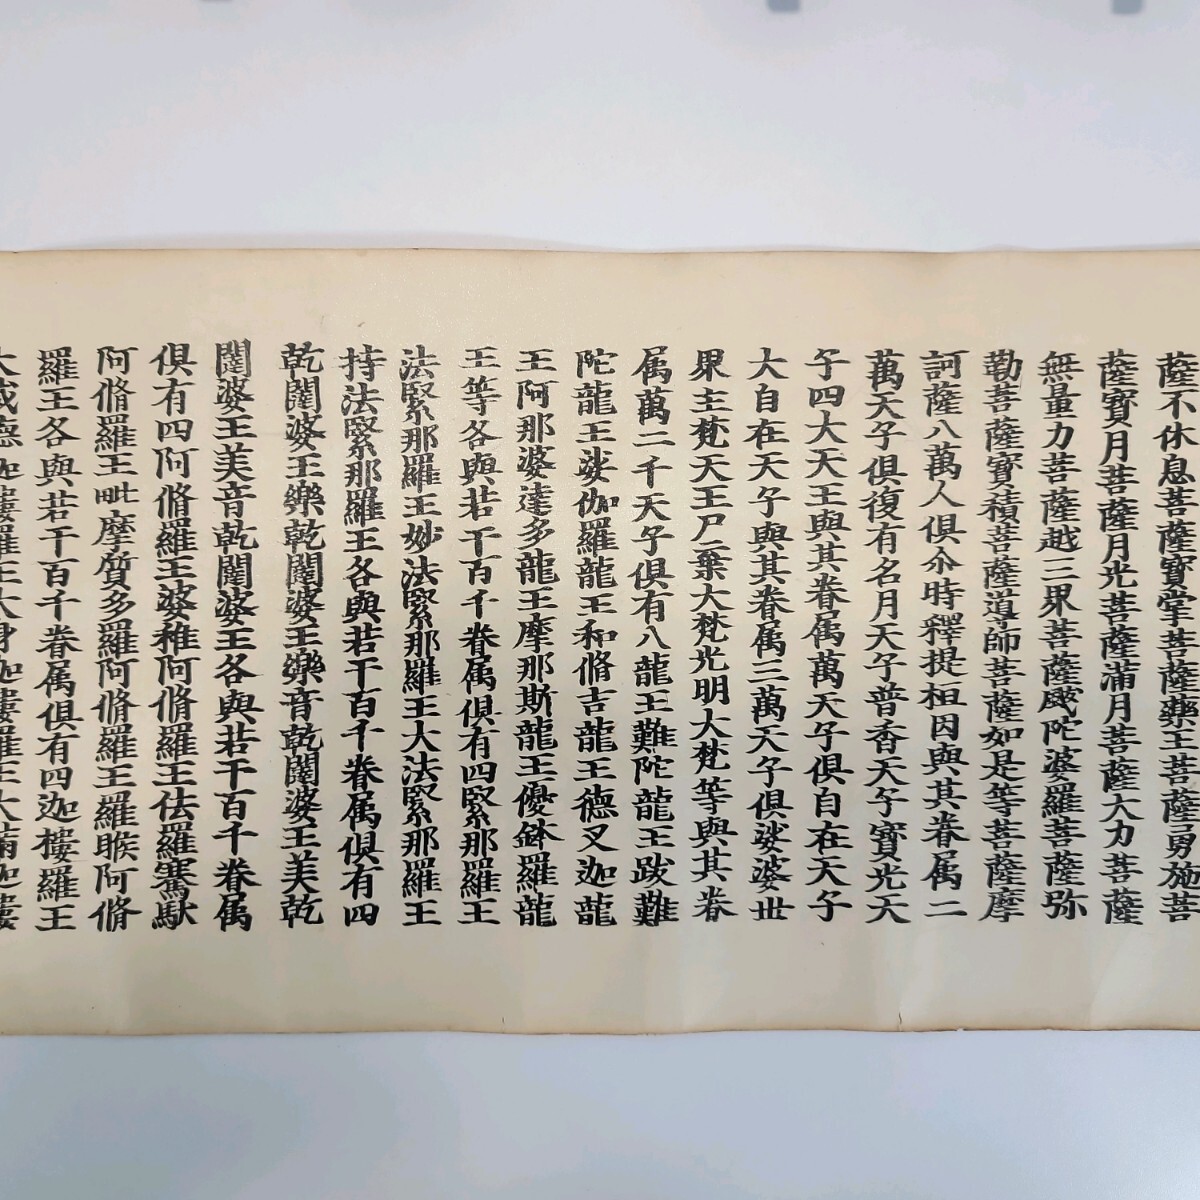 薩不休息菩薩寶掌菩薩藥王菩薩勇施菩
薩寶月菩薩月光菩薩滿月菩薩大力菩薩
無量力菩薩越三界菩薩颰陀婆羅菩薩弥
勒菩薩寶積菩薩導師菩薩如是等菩薩摩
訶薩八萬人俱尒時釋提桓因與其眷属二
萬天子俱復有名月天子普香天子寶光天
子四大天王與其眷属萬天子俱自在天子
大自在天子與其眷属三萬天子俱娑婆世
界主梵天王尸棄大梵光明大梵等與其眷
属萬二千天子俱有八龍王難陀龍王跋難
陀龍王娑伽羅龍王和脩吉龍王德叉迦龍
王阿那婆達多龍王摩那斯龍王優鉢羅龍
王等各與若干百千眷属俱有四緊那羅王
法緊那羅王妙法緊那羅王大法緊那羅王
持法緊那羅王各與若干百千眷属俱有四
乾闥婆王樂乾闥婆王樂音乾闥婆王美乾
闥婆王美音乾闥婆王各與若干百千眷属
俱有四阿脩羅王婆稚阿脩羅王佉羅騫馱
阿脩羅王毗摩質多羅阿脩羅王羅睺阿脩
羅王各與若干百千眷属俱有四迦樓羅王
大威德迦樓羅王大身迦樓羅王大滿迦樓